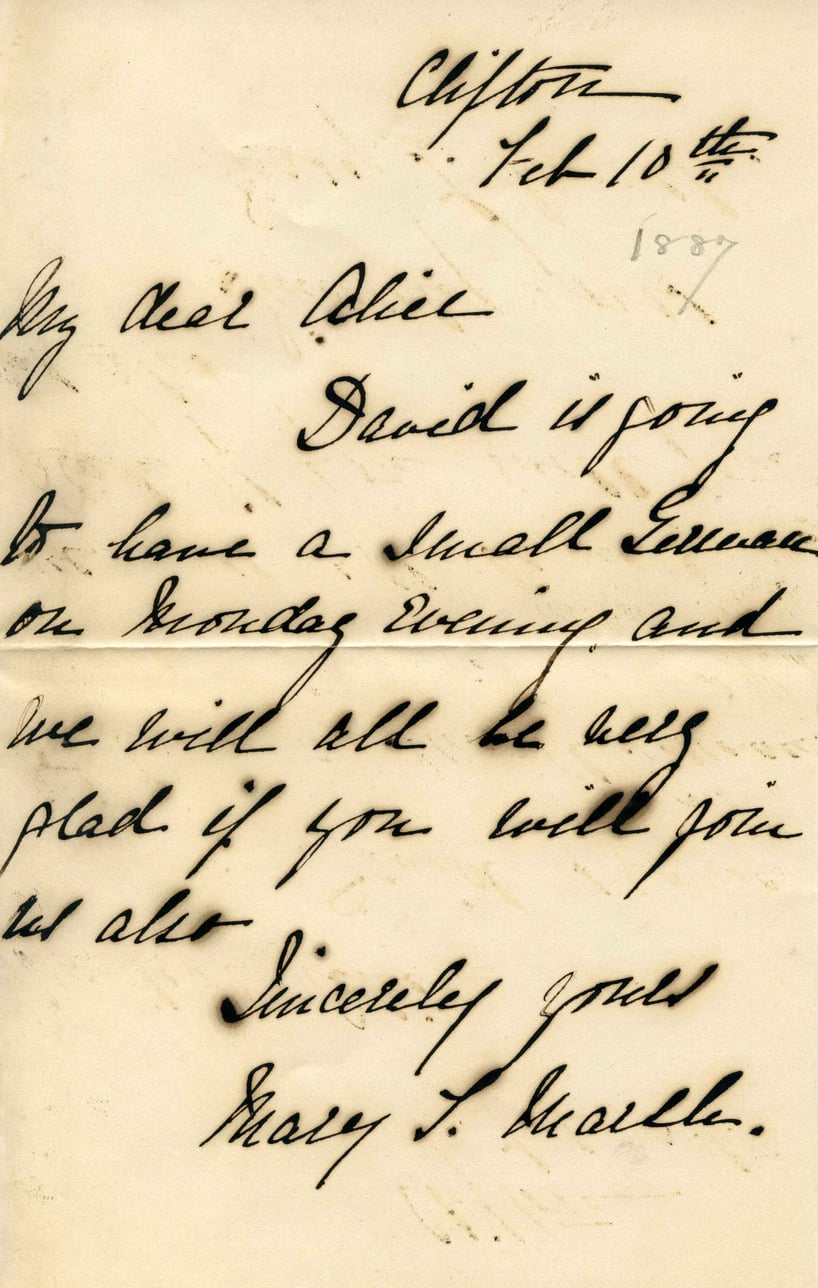 Clifton
Feb 10th
1887
My dear Alice
David is going
to have a small German
on Monday Evening and
we will all be very
glad if you will join
us also
Sincerely yours
Mary S. Marsh.